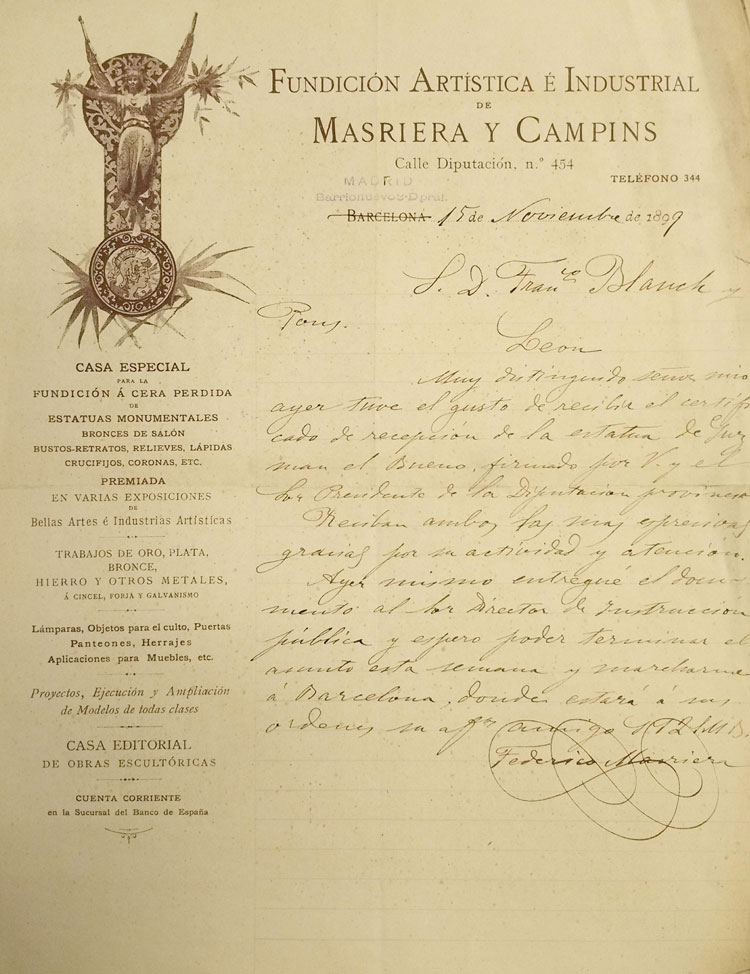 FUNDICIÓN ARTÍSTICA É INDUSTRIAL
DE
MASRIERA Y CAMPINS
Calle Diputación, n.º 454
TELÉFONO 344
MADRID
BARCELONA 15 de Noviembre de 1899
S. D. Fran.co Blanch y
Pons.
Leon
Muy distinguido señor mio
ayer tuve el gusto de recibir el certifi
cado de recepción de la estatua de Guz
man el Bueno, firmado por V. y el
Sor Presidente de la Diputacion provincia
Reciban ambos las mas expresivas
gracias por su actividad y atención.
Ayer mismo entregué el docu-
mento al Sor Director de Instrucción
pública y espero poder terminar el
asunto esta semana y marcharme
á Barcelona, donde estará á sus
ordenes su af.mo amigo
Federico Masriera
CASA ESPECIAL
PARA LA
FUNDICIÓN Á CERA PERDIDA
DE
ESTATUAS MONUMENTALES
BRONCES DE SALÓN
BUSTOS-RETRATOS, RELIEVES, LÁPIDAS
CRUCIFIJOS, CORONAS, ETC.
PREMIADA
EN VARIAS EXPOSICIONES
DE
Bellas Artes é Industrias Artísticas
TRABAJOS DE ORO, PLATA,
BRONCE,
HIERRO Y OTROS METALES,
Á CINCEL, FORJA Y GALVANISMO
Lámparas, Objetos para el culto, Puertas
Panteones, Herrajes
Aplicaciones para Muebles, etc.
Proyectos, Ejecución y Ampliación
de Modelos de todas clases
CASA EDITORIAL
DE OBRAS ESCULTÓRICAS
CUENTA CORRIENTE
en la Sucursal del Banco de España